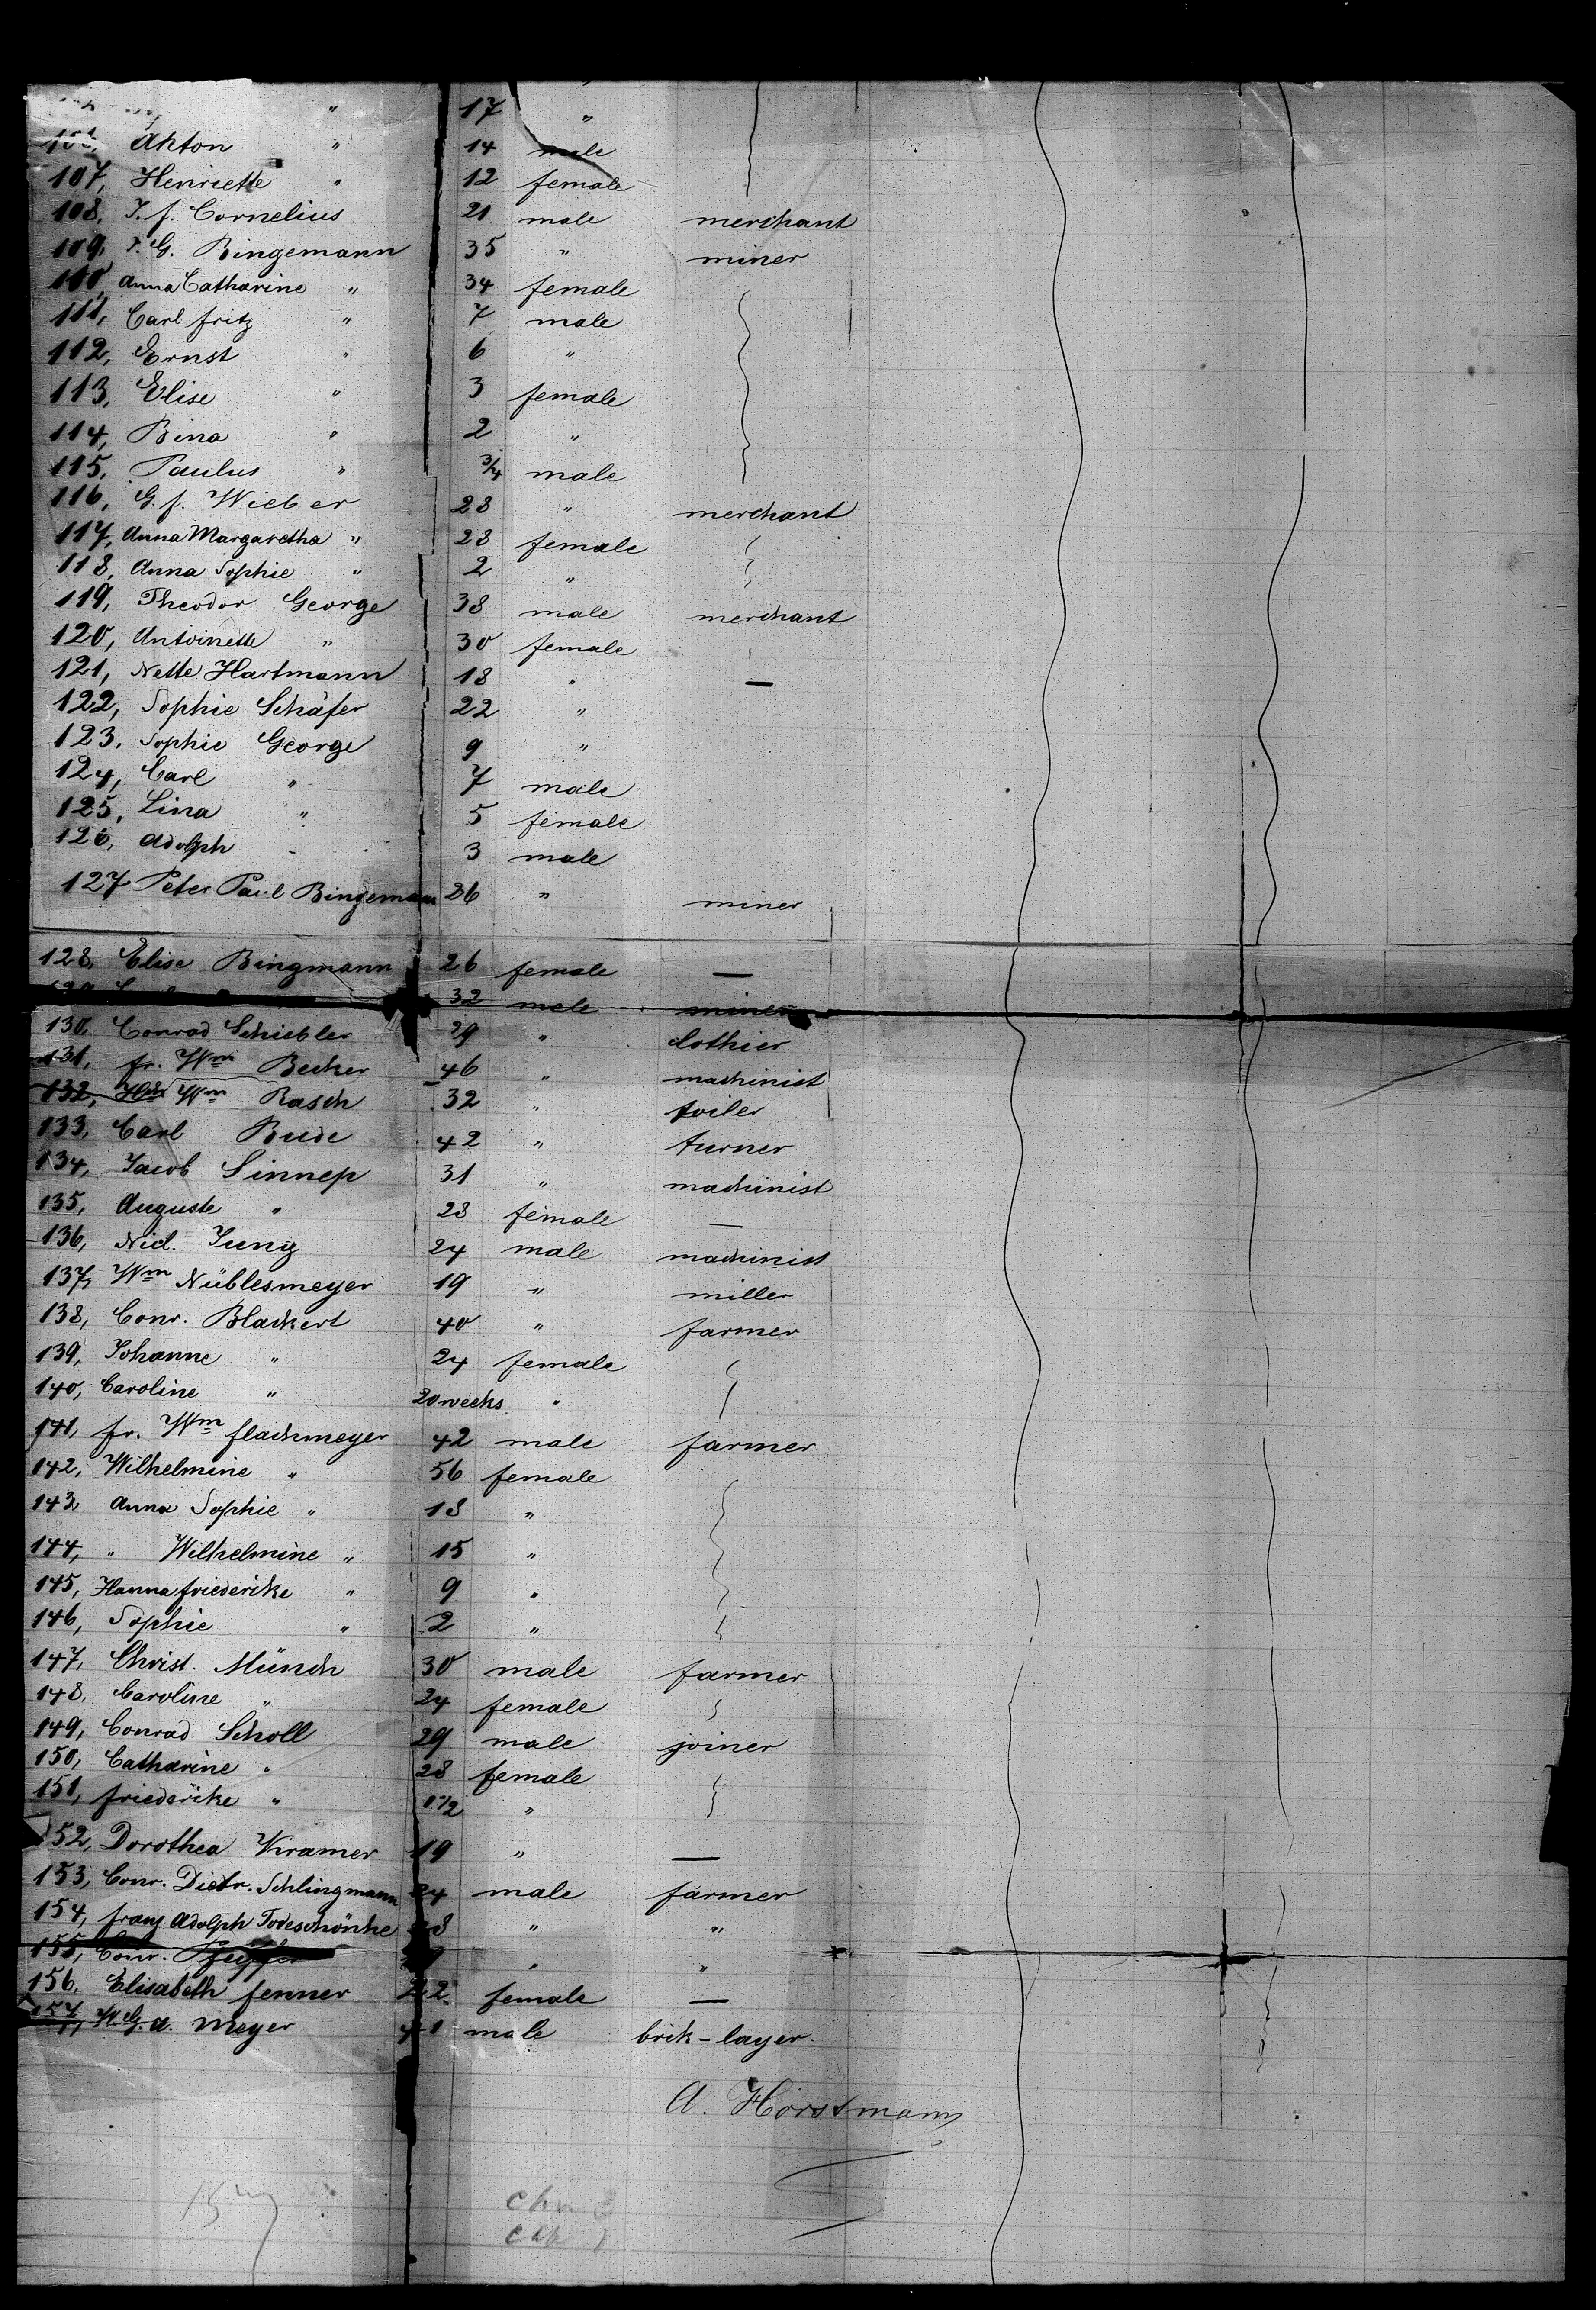 " 17 "
106, Anton " 14 male
107, Henriette " 12 female
108, J. f. Cornelius 21 male merchant
109, J. G. Bingemann 35 " miner
110, Anna Catharine " 34 female
111, Carl fritz " 7 male
112, Ernst " 6 "
113, Elise " 3 female
114, Bina " 2 "
115, Paulus " 3/4 male
116, G. f. Wieber 28 " merchant
117, Anna Margaretha " 28 female
118, Anna Sophie " 2 "
119, Theodor George 38 male merchant
120, Antoinette " 30 female
121, Nette Hartmann 18 " —
122, Sophie Schäfer 22 "
123, Sophie George 9 "
124, Carl " 7 male
125, Lina " 5 female
126, Adolph " 3 male
127 Peter Paul Bingemann 26 " miner
128, Elise Bingmann 26 female —
129, 32 male miner
130, Conrad Schiebler 29 " clothier
131, fr. Wm Becker 46 " machinist
132, Wm Rasch 32 " toiler
133, Carl Bude 42 " turner
134, Jacob Sinnep 31 " machinist
135, Auguste " 28 female —
136, Nicl. Jung 24 male machinist
137, Wm Nüblesmeyer 19 " miller
138, Conr. Blackert 40 " farmer
139, Johanne " 24 female
140, Caroline " 20 weeks "
141, fr. Wm flachmeyer 42 male farmer
142, Wilhelmine " 56 female
143, Anna Sophie " 18 "
144, " Wilhelmine " 15 "
145, Hanna friederike " 9 "
146, Sophie " 2 "
147, Christ. Münch 30 male farmer
148, Caroline " 24 female
149, Conrad Scholl 29 male joiner
150, Catharine " 28 female
151, friederike " 1 1/2 "
152, Dorothea Kramer 19 " —
153, Conr. Dietr. Schlingmann 24 male farmer
154, franz Adolph Todeschönke 28 " "
155, Conr. " "
156, Elisabeth fenner 22 female —
157, A. Meyer 41 male brik-layer
A. Horstmann
157